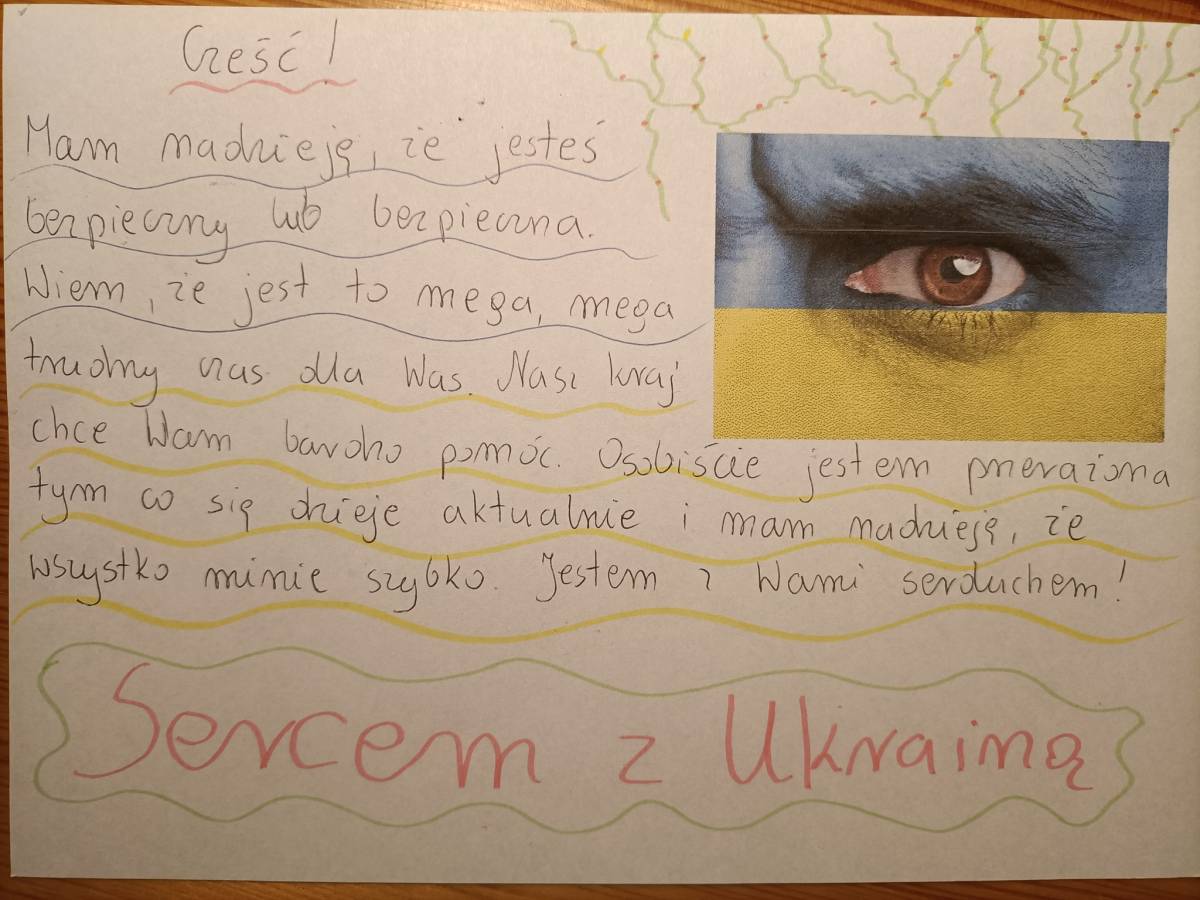 Cześć!
Mam nadzieję, że jesteś
bezpieczny lub bezpieczna.
Wiem, że jest to mega, mega
trudny czas dla Was. Nasz kraj
chce Wam bardzo pomóc. Osobiście jestem przerażona
tym co się dzieje aktualnie i mam nadzieję, że
wszystko minie szybko. Jestem z Wami serduchem!
Sercem z Ukrainą